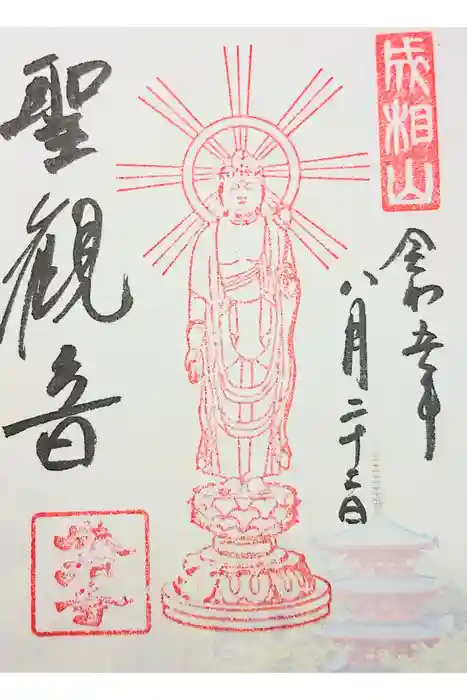 成相山
令和五年
八月二十二日
聖観音